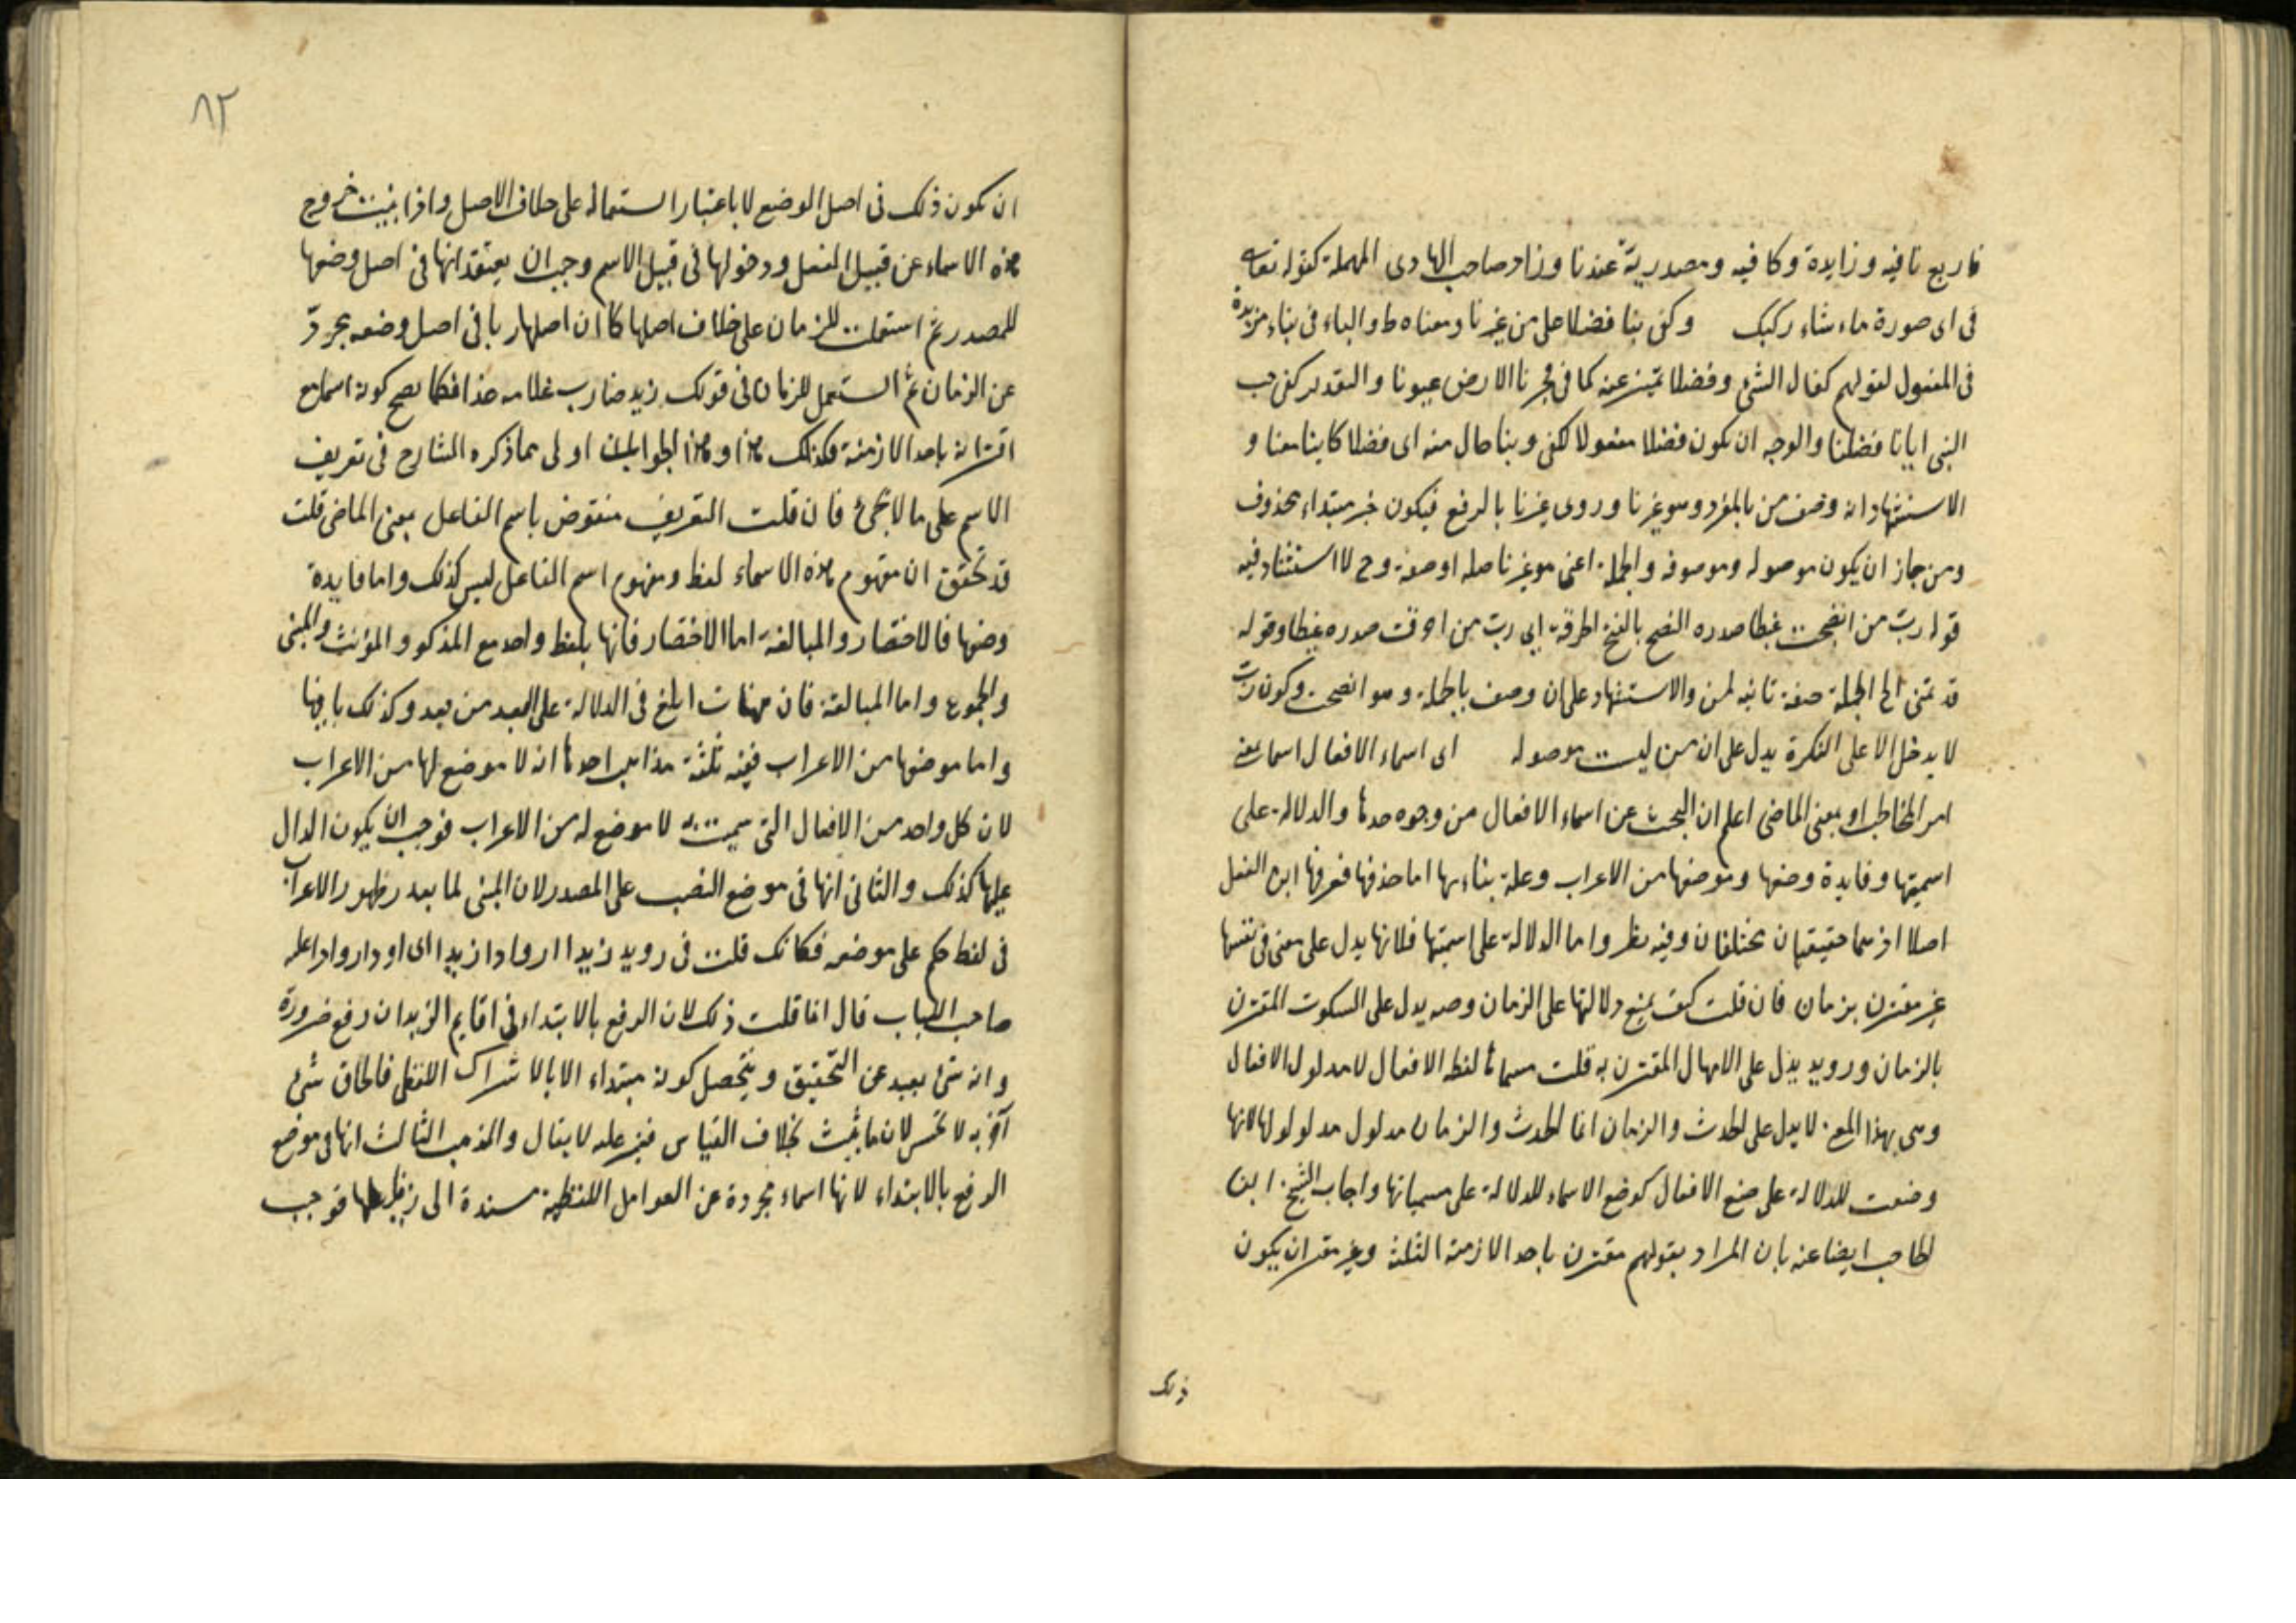 فاربع نافيه وزايدة وكافيه ومصدرية عندنا وزاد صاحب الهادى المهملة كقوله تعالى
فى اى صورة ماء شاء ركبك وكفى بنا فضلا على من غيرنا ومعناه ط والباء فى بناء مزيدة
فى المفعول لقولهم كفاك الشئ وفضلا تميز عنه كما فى فجرنا الارض عيونا والتقدير كفى حب
النبى ايانا فضلنا والوجه ان يكون فضلا مفعولا لكفى وبنا حال منه اى فضلا كاينا معنا و
الاستشهاد انه وصف من بالمفرد وهو غيرنا وروى غيرنا بالرفع فيكون خبر مبتداء محذوف
ومن جاز ان يكون موصوله وموصوفه والجملة اعنى هو غيرنا صله او صفة وح لا استشهاد فيه
قوله رب من انضجت غيظا صدره النضج بالفتح الحرقة اى رب من احرقت صدره غيظا وقوله
قد تمنى الخ الجملة صفة ثانيه لمن والاستشهاد على ان وصف بالجملة وهو انضجت وكون رب
لا يدخل الا على النكرة يدل على ان من ليست موصوله اى اسماء الافعال اسما بمعنى
امر المخاطب او بمعنى الماضى اعلم ان البحث عن اسماء الافعال من وجوه حدها والدلالة على
اسميتها وفايدة وضعها وموضعها من الاعراب وعلة بناءها اما حدها فعرفها ابن الفعل
اصلا اذ هما حقيقتان مختلفان وفيه نظر واما الدلالة على اسميتها فلانها يدل على معنى فى نفسها
غير مقترن بزمان فان قلت كيف يمنع دلالتها على الزمان وصه يدل على السكوت المقترن
بالزمان ورويد يدل على الامهال المقترن به قلت مسماها لفظ الافعال لا مدلول الافعال
وهى بهذا المع لا يدل على الحدث والزمان انما الحدث والزمان مدلول مدلولها لانها
وضعت للدلالة على صيغ الافعال كوضع الاسماء للدلالة على مسمياتها واجاب الشيخ ابن
الحاجب ايضا عنه بان المراد بقولهم مقترن باحد الازمنة الثلثة وغير مقترن ان يكون
ذلك
٨٢
ان يكون ذلك فى اصل الوضع لا باعتبار استعماله على خلاف الاصل واذا ثبت خروج
هذه الاسماء عن قبيل الفعل ودخولها فى قبيل الاسم وجب ان يعتقد انها فى اصل وضعها
للمصدر ثم استعملت للزمان على خلاف اصلها كما ان اصل ضاربا فى اصل وضعه مجرد
عن الزمان ثم استعمل للزمان فى قولك زيد ضارب غلامه غدا فكما يصح كونه اسما مع
اقترانه باحد الازمنة فكذلك هذا وهذا الجوابان اولى مما ذكره الشارح فى تعريف
الاسم على ما لا يخفى فان قلت التعريف منقوض باسم الفاعل بمعنى الماضى قلت
قد تحقق ان مفهوم هذه الاسماء لفظ ومفهوم اسم الفاعل ليس كذلك واما فايدة
وضعها فالاختصار والمبالغة اما الاختصار فانها بلفظ واحد مع المذكر والمؤنث والمثنى
والمجموع واما المبالغة فان هيهات ابلغ فى الدلالة على البعد من بعد وكذلك باقيها
واما موضعها من الاعراب ففيه ثلثة مذاهب احدها انه لا موضع لها من الاعراب
لان كل واحد من الافعال التى سميت به لا موضع له من الاعراب فوجب ان يكون الدال
عليها كذلك والثانى انها فى موضع النصب على المصدر لان المبنى لما بعد رظهور الاعراب
فى لفظه حكم على موضعه فكانك قلت فى رويد زيدا اروادا زيدا اى اود اروادا علم
صاحب اللباب قال انما قلت ذلك لان الرفع بالابتداء فى اقايم الزيدان رفع ضرورة
وانه شئ بعيد عن التحقيق ويتحصل كونه مبتداء الا بالاشتراك اللفظى فالحاق شئ
آخر به لا تحسن لان ما يثبت بخلاف القياس فغير عله لا يقال والمذهب الثالث انها فى موضع
الرفع بالابتداء لانها اسماء مجردة عن العوامل اللفظية مسندة الى فاعلها فوجب